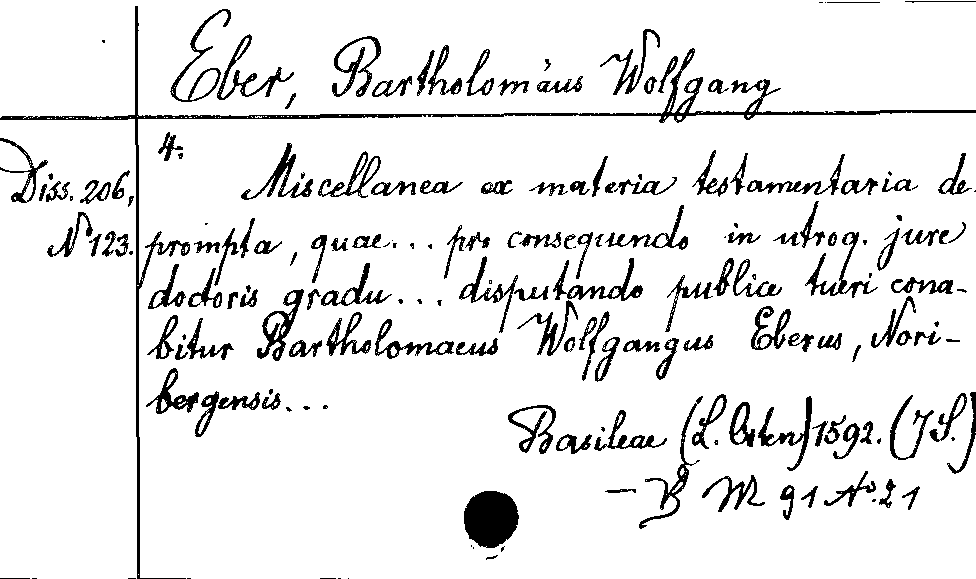 Eber, Bartholomäus Wolfgang
4.
Diss. 206, Miscellanea ex materia testamentaria de-
No 123. prompta, quae... pro consequendo in utroq. jure
doctoris gradu... disputando publice tueri cona-
bitur Bartholomaeus Wolfgangus Eberus, Nori-
bergensis...
Basileae (L. Osten) 1592. (JS.)
— B M 91 No. 21